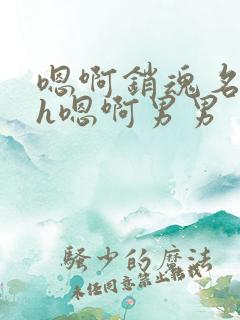 嗯啊銷魂名
h嗯啊男男
騷少的魔法
未经同意禁止转载